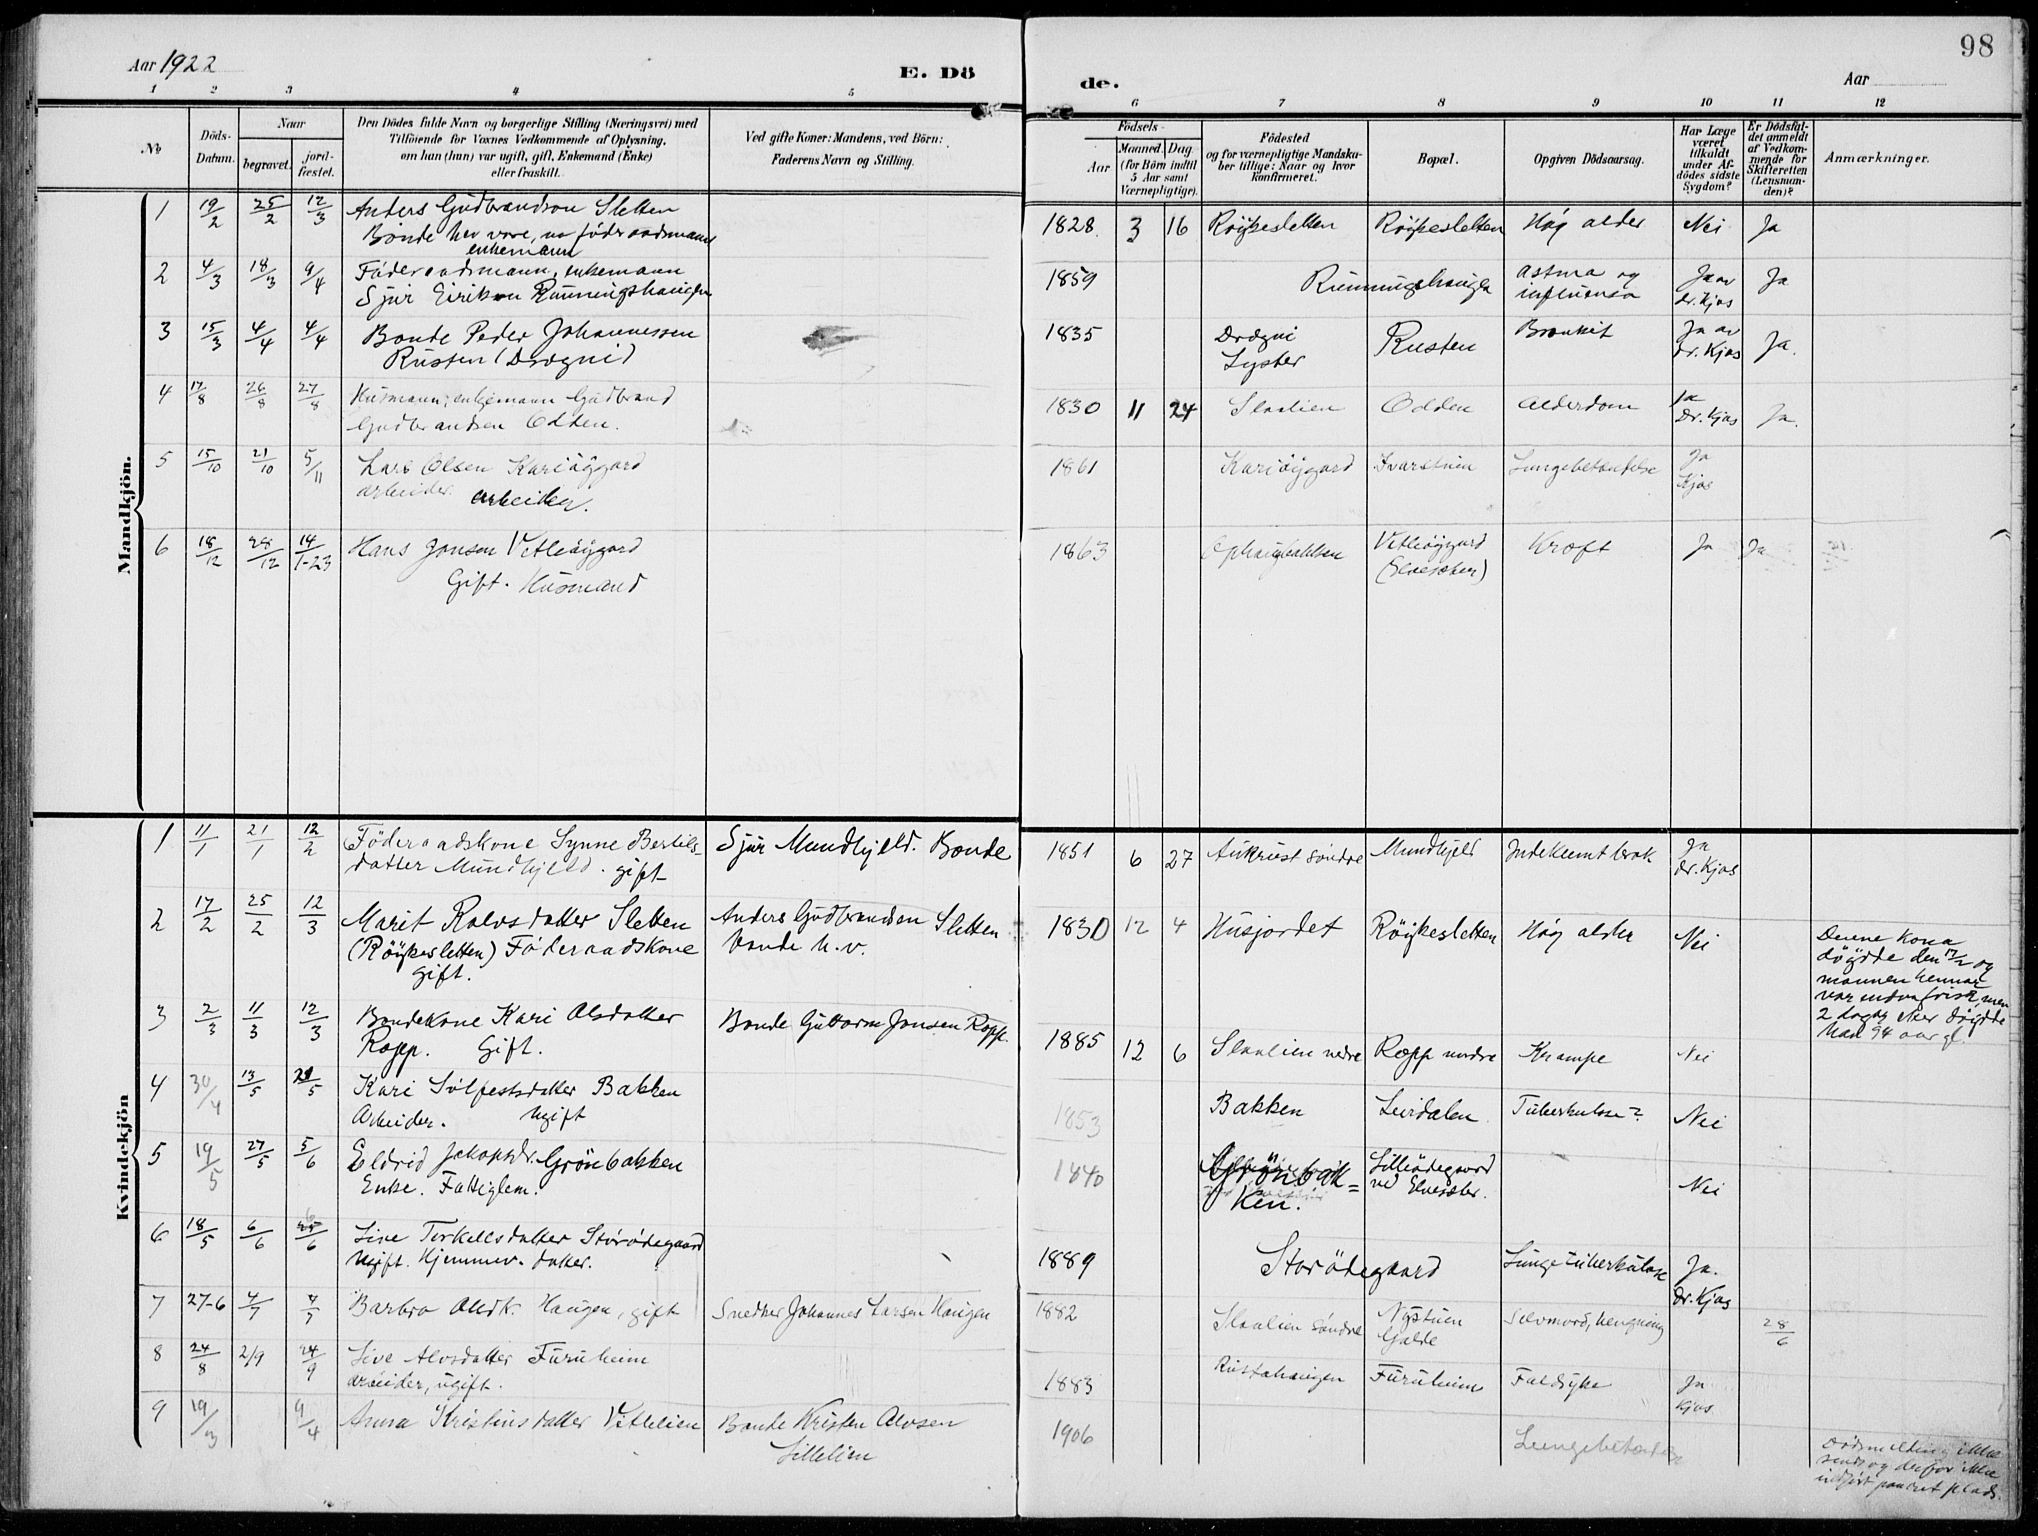 98
Aar 1922
E. Dö
de.
Aar
1 2 3 4 5 6 7 8 9 10 11 12
№
Döds-
Datum.
Naar
begravet.
jord-
fæstet.
Den Dödes fulde Navn og borgerlige Stilling (Næringsvei) med
Tilföiende for Voxnes Vedkommende af Oplysning,
om han (hun) var ugift, gift, Enkemand (Enke)
eller fraskilt.
Ved gifte Koner: Mandens, ved Börn:
Faderens Navn og Stilling.
Födsels-
Aar
Maaned. Dag.
(for Börn indtil
5 Aar samt
Værnepligtige).
Födested
og for værnepligtige Mandska-
ber tillige: Naar og hvor
konfirmeret.
Bopæl.
Opgiven Dödsaarsag.
Har Læge
været
tilkaldt
under Af-
dödes sidste
Sygdom?
Er Dödsfal-
det anmeldt
af Vedkom-
mende for
Skifteretten
(Lensman-
den)?
Anmærkninger.
Mandkjön.
1 19/2 25/2 12/3 Anders Gudbrandson Sletten 1828. 3 16 Röykesletten Röykesletten Høg alder Nei Ja
Bonde her vore, no föderaadsmann
enkemann
2 4/3 18/3 9/4 Föderaadsmann, enkemann 1859 Runningshaugen Astma og Ja av Ja
Sjur Eirikson Runningshaugen influensa dr. Kjos
3 15/3 4/4 4/4 Bonde Peder Johannessen 1835 Drægni Rusten Bronkit Ja av Ja.
Rusten (Drægni) Lyster dr. Kjos
4 17/8 26/8 27/8 Husmann, enkjemann Gudbrand 1830 11 24 Slaalien Odden Alderdom Ja Ja.
Gudbrandsen Odden. Dr. Kjos
5 15/10 21/10 5/11 Lars Olsen Kariöygard 1861 Kariöygard Ivarstuen Lungebetændelse Ja
arbeider. arbeider. Kjos
6 18/12 28/12 14/1-23 Hans Jonsen Vetleöygard 1863 Vetleöygard Kræft Ja Ja
Gift. Husmand (Elvesæter)
Kvindekjön
1 11/1 21/1 12/2 Föderaadskone Synne Bertils- Sjur Mundhjeld. Bonde 1851 6 27 Aukrust söndre Mundhjeld Indeklemt brok Ja
datter Mundhjeld. gift dr. Kjos
2 17/2 25/2 12/3 Marit Rolvsdatter Sletten Anders Gudbrandsen Sletten 1830 12 4 Husjordet Röykesletten Høg alder Nei
(Röykesletten) Föderaadskone bonde h. v.
gift.
Denne kona
döydde den 17/2 og
mannen hennar
var endra frisk, men
2 dagar etter döydde
han 94 aar gl
3 2/3 11/3 12/3 Bondekone Kari Olsdatter Bonde Guttorm Jonsen Ropp. 1885 12 6 Slaalien nedre Ropp nordre Krampe Nei
Ropp. Gift.
4 30/4 13/5 21/5 Kari Sölfestsdatter Bakken 1853 Bakken Leirdalen Tuberkulose? Nei
Arbeider. Ugift
5 19/5 27/5 5/6 Eldrid Jakopsdr. Grönbakken 1840 Grönbak= Lilleödegaard Nei
Enke. Fattiglem. ken. ved Elvesæter.
6 18/5 6/6 25/6 Live Torkellsdatter Storödegaard 1889 Storödegaard Lungetuberkulose Ja.
Ugift. Hjemmev. datter. Dr. Kjos
7 27-6 4/7 4/7 Barbro Olsdtr. Haugen, gift Snedker Johannes Larsen Haugen 1882 Slaalien söndre Nystuen Selvmord, hengning 28/6
Galde
8 24/8 2/9 24/9 Live Alvsdatter Furuheim 1883 Rustahaugen Furuheim Faldsyke Ja
arbeider, ugift. Kjos
9 19/3 9/4 Anna Kristinsdatter Vetlelien Bonde Kristen Alvsen 1906 Lungebetændelse
Lillelien
Dödsmelding ikke
sendt og derfor ikke
indfört paa ret plads.